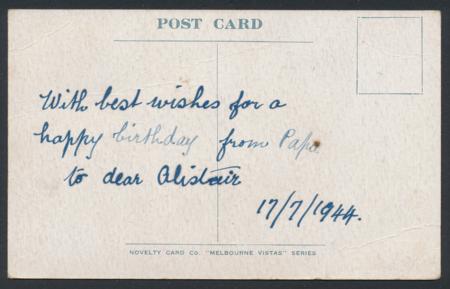 POST CARD
With best wishes for a
happy birthday from Papa
to dear Alistair
17/7/1944.
NOVELTY CARD Co. "MELBOURNE VISTAS" SERIES